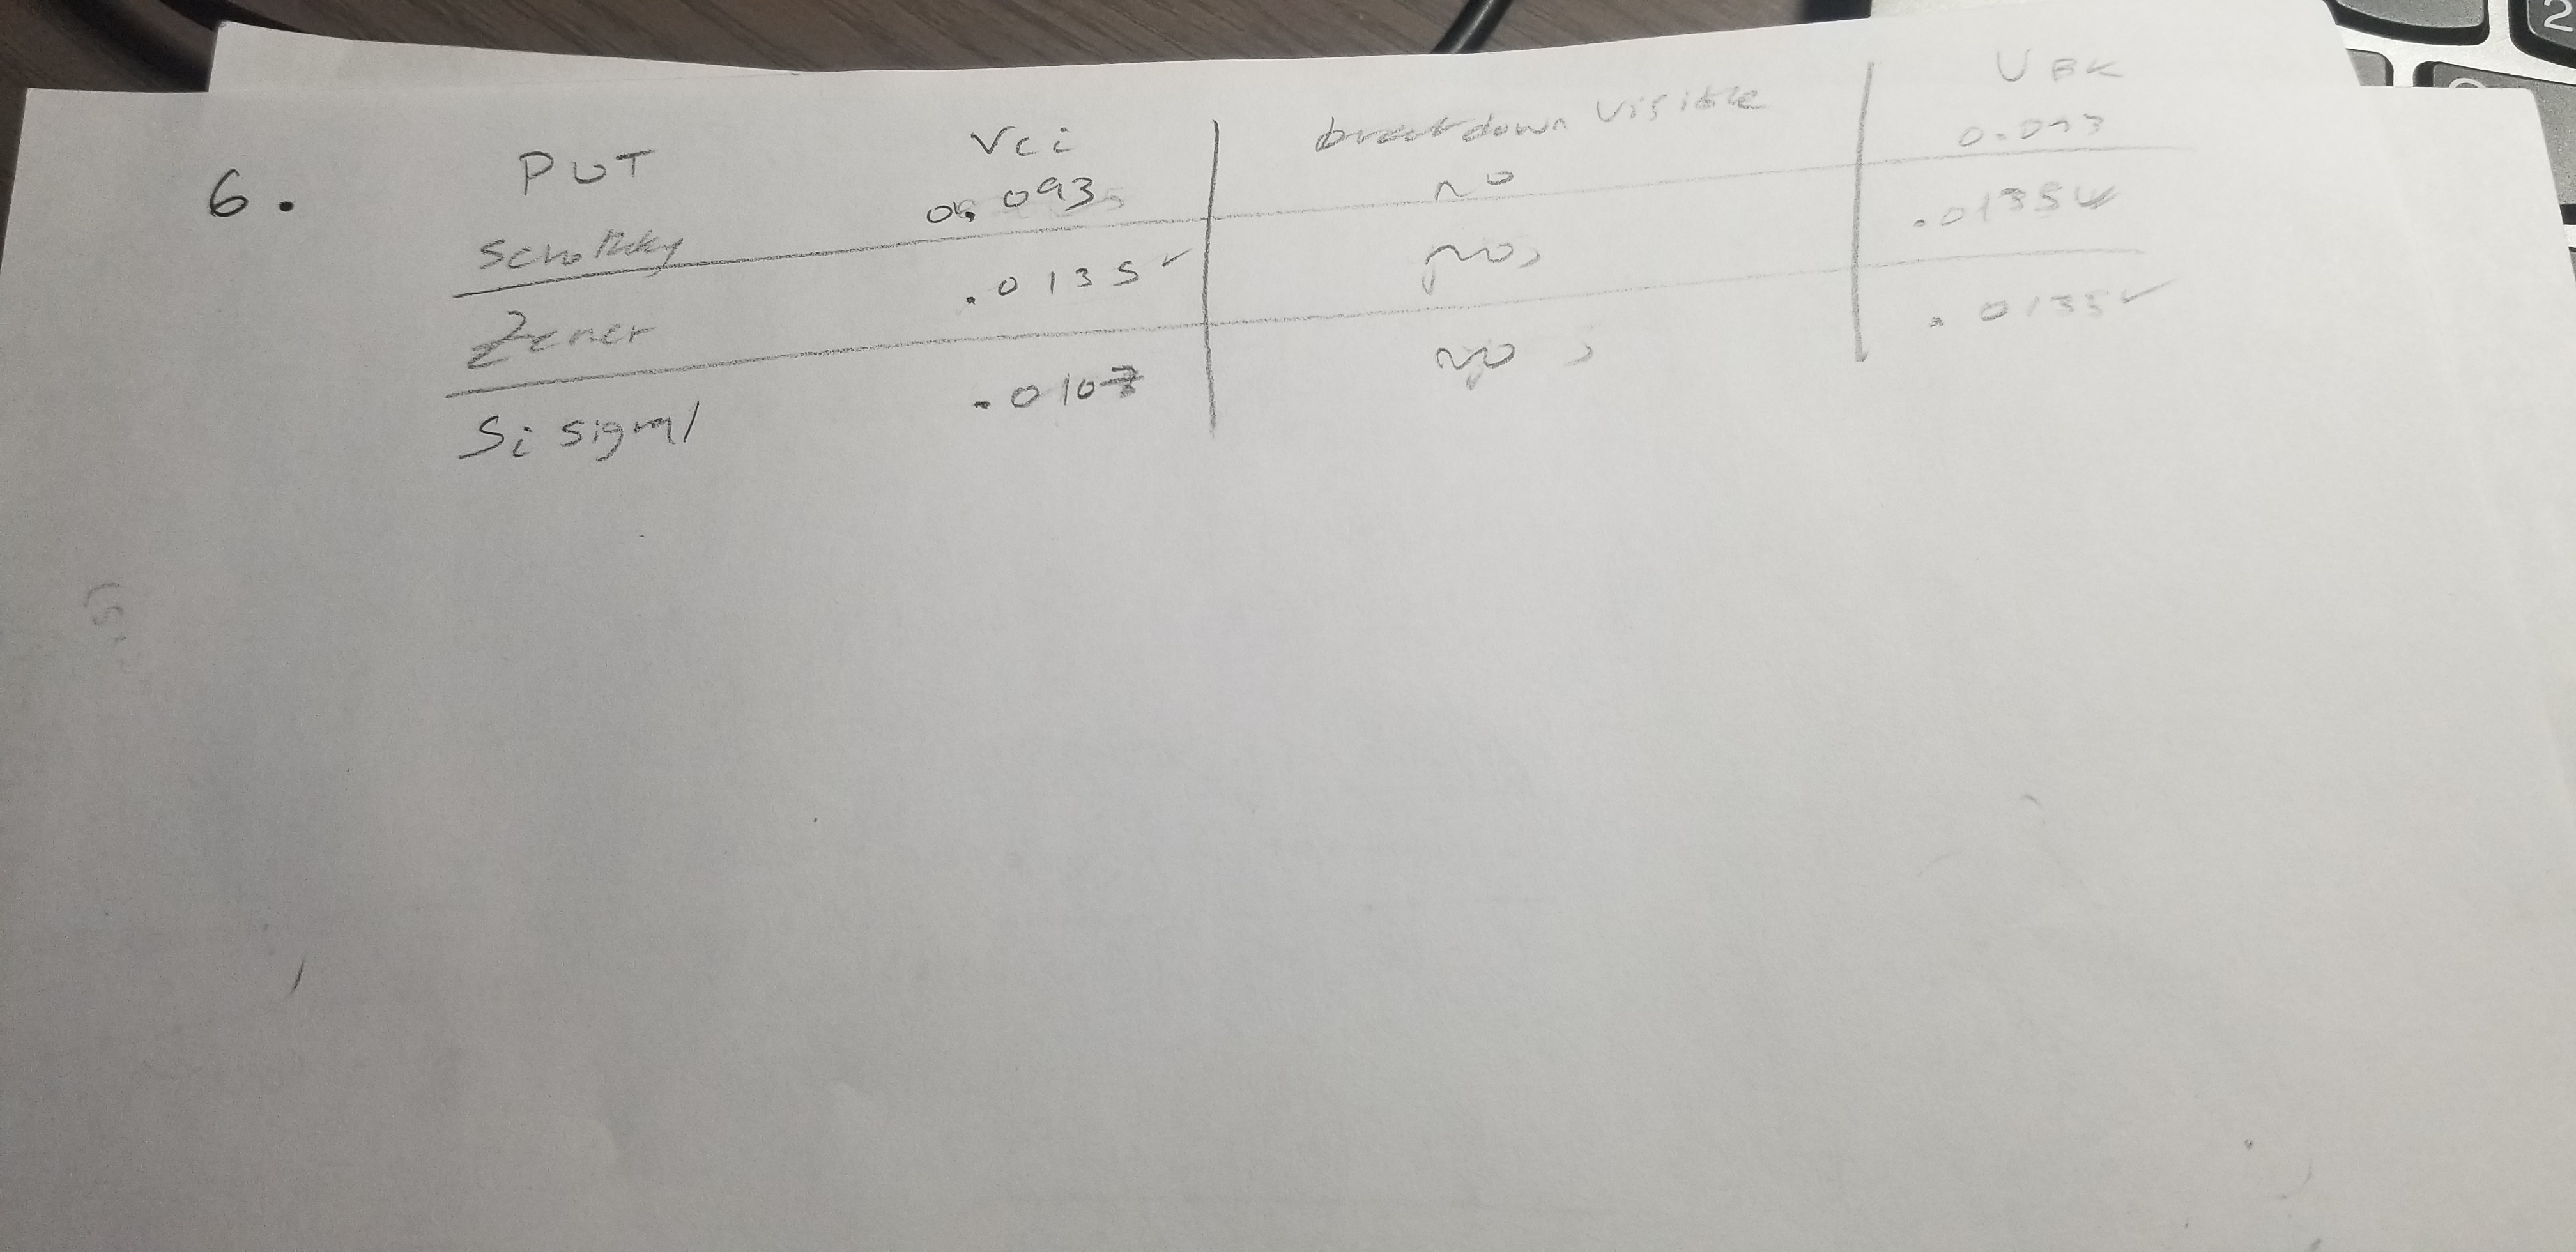 6.
DUT Vci breakdown visible VBK
Schottky 0.093 no 0.093
Zener .0135v no .0135v
Si signal .0107 no .0135v